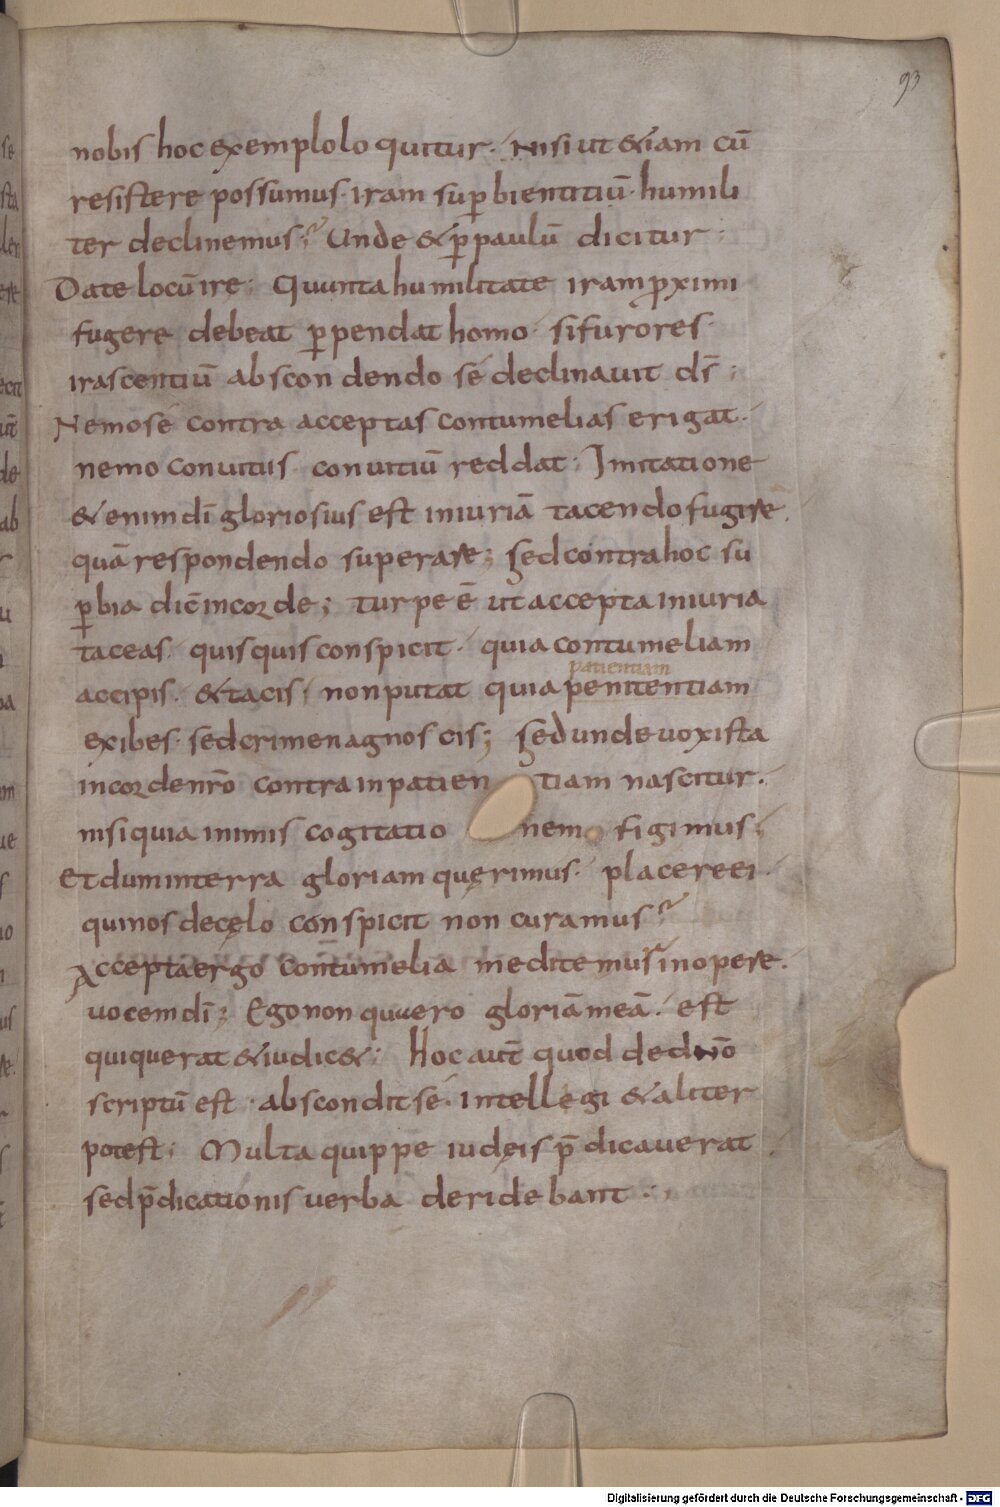 93
nobis hoc exemplo loquitur. Nisi ut &iam cū
resistere possumus. iram sup̱bientitiū. humili
ter declinemus; Unde & p̱paulū dicitur;
Date locū ire; Quunta humilitate iram p̱ximi
fugere debeat p̱pendat homo. si furores.
irascentiū abscondendo sé declinauit ds̄;
Nemo sé contra acceptas contumelias erigat.
nemo conuitiis. conuitiū reddat; Imitatione
& enim dī gloriosius est iniuriā tacendo fugire.
quā respondendo superare; Sed contra hoc su
p̱bia dic̄ in corde; turpe ē ut accepta iniuria
taceas. quisquis conspicit. quia contumeliam
patientiam
accipis. & tacis. non putat quia penitentiam
exibes. sed crimen agnoscis; Sed unde uox ista
in corde nr̄o contra inpatientiam nascitur.
nisi quia inimis cogitationem figimus;
Et dum in terra gloriam quęrimus. placere ei.
qui nos de cęlo conspicit non curamus;
Accepta ergo contumelia meditemur in opere.
uocem dī; Ego non quuero gloriā meā. est
qui querat & iudic&; Hoc aut̄ quod de dNō
scriptū est. abscondit sé. intellęgi & aliter
potest; Multa quippe iudęis p̄dicauerat
sed p̄dicationis uerba deridebant.;
Digitalisierung gefördert durch die Deutsche Forschungsgemeinschaft - DFG